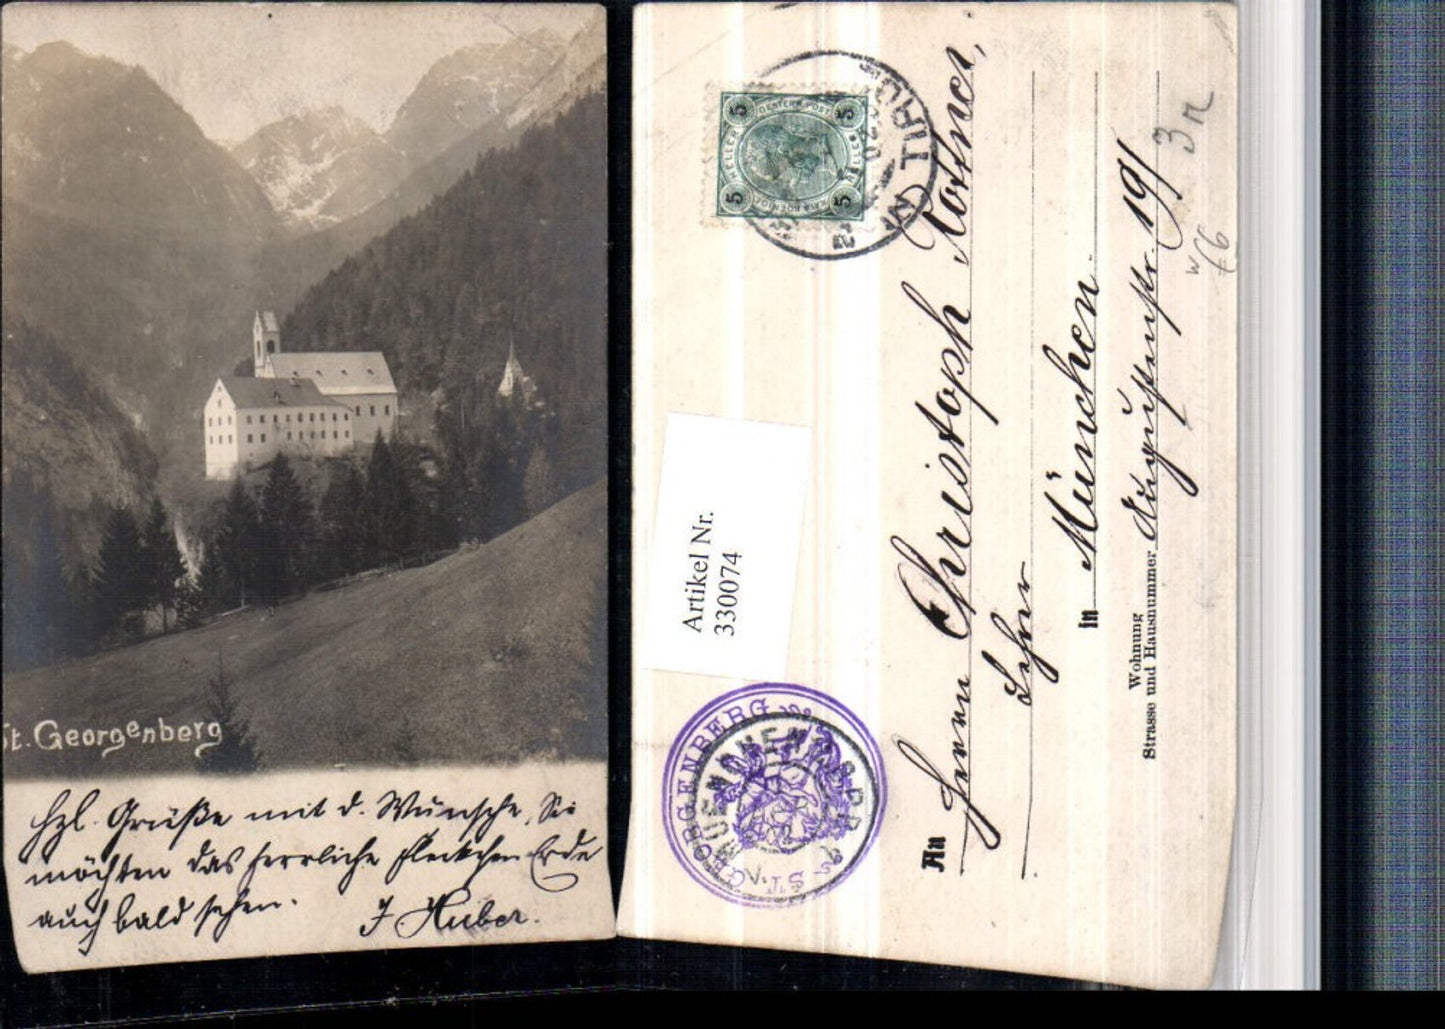 St. Georgenberg
Hzl. Grüße mit d. Wunsche, Sie
möchten das herrliche Fleckchen Erde
auch bald sehen.
J. Huber.
5 OESTERR. POST 5
HELLER HELLER
5 5
TIROL
ST. GEORGENBERG
MUENCHEN
Artikel Nr.
330074
An Herrn Christoph
Lehrer
in München.
Wohnung
Strasse und Hausnummer Augustenstr. 19/
3 n